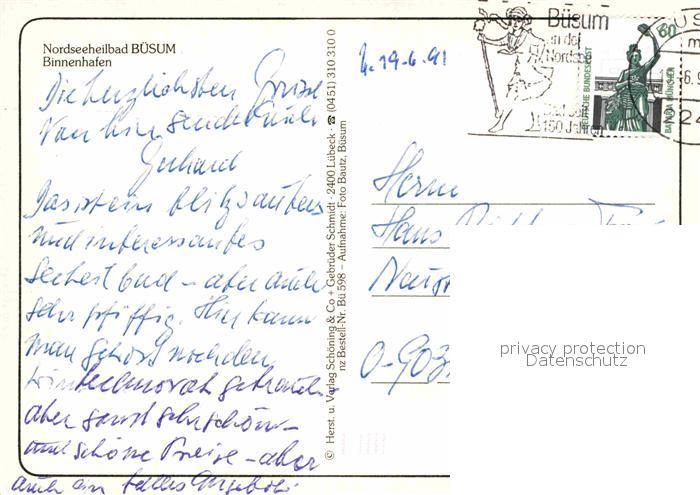 Nordseeheilbad BÜSUM
Binnenhafen
Die herzlichsten Grüße
von hier sendet Euch
Gerhard
Das ist ein blitzsauberes
und interessantes
Seebad – aber auch
sehr pfiffig. Hier kann
man selbst noch den
gebrauchen
aber sonst sehr schön –
und schöne Preise – aber
auch ein tolles Angebot.
© Herst. u. Verlag Schöning & Co + Gebrüder Schmidt · 2400 Lübeck · ☎ (0451) 310 310 0
nz Bestell-Nr. Bü 598 – Aufnahme: Foto Bautz, Büsum
19.6.91
Büsum
an der
Nordsee
150 Jahren
DEUTSCHE BUNDESPOST
60
BAVARIA MÜNCHEN
Herrn
Hans
O-903
privacy protection
Datenschutz